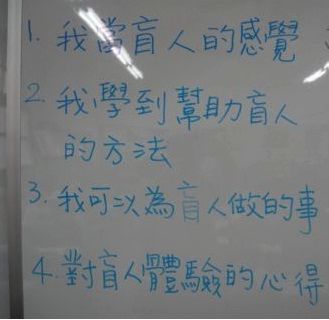 1. 我當盲人的感覺
2. 我學到幫助盲人
的方法
3. 我可以為盲人做的事
4. 對盲人體驗的心得